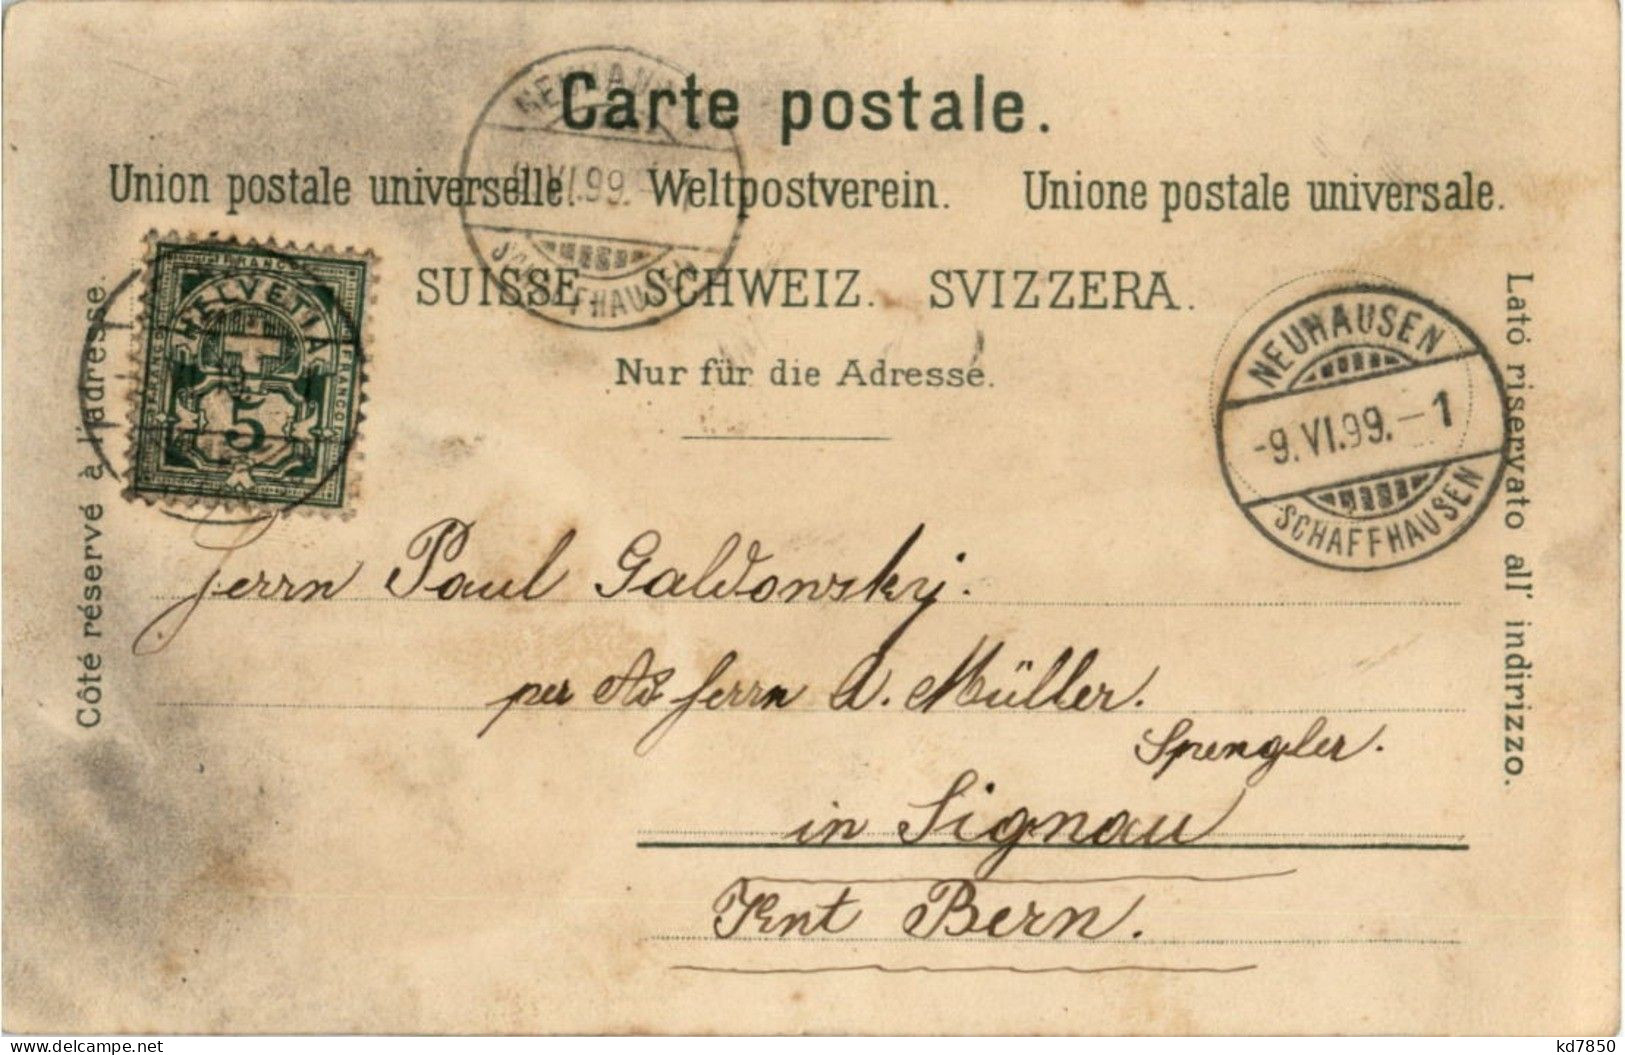 Carte postale.
Union postale universelle. Weltpostverein. Unione postale universale.
SUISSE. SCHWEIZ. SVIZZERA.
Nur für die Adresse.
Côté réservé à l'adresse.
Lato riservato all' indirizzo.
NEUHAUSEN
VI.99.
SCHAFFHAUSEN
FRANCO
FRANCO
FRANCO
HELVETIA
5
NEUHAUSEN
-9.VI.99.-1
SCHAFFHAUSEN
Herrn Paul Galdowsky.
per Ad Herrn A. Müller.
Spengler.
in Signau
Knt Bern.
delcampe.net
kd7850